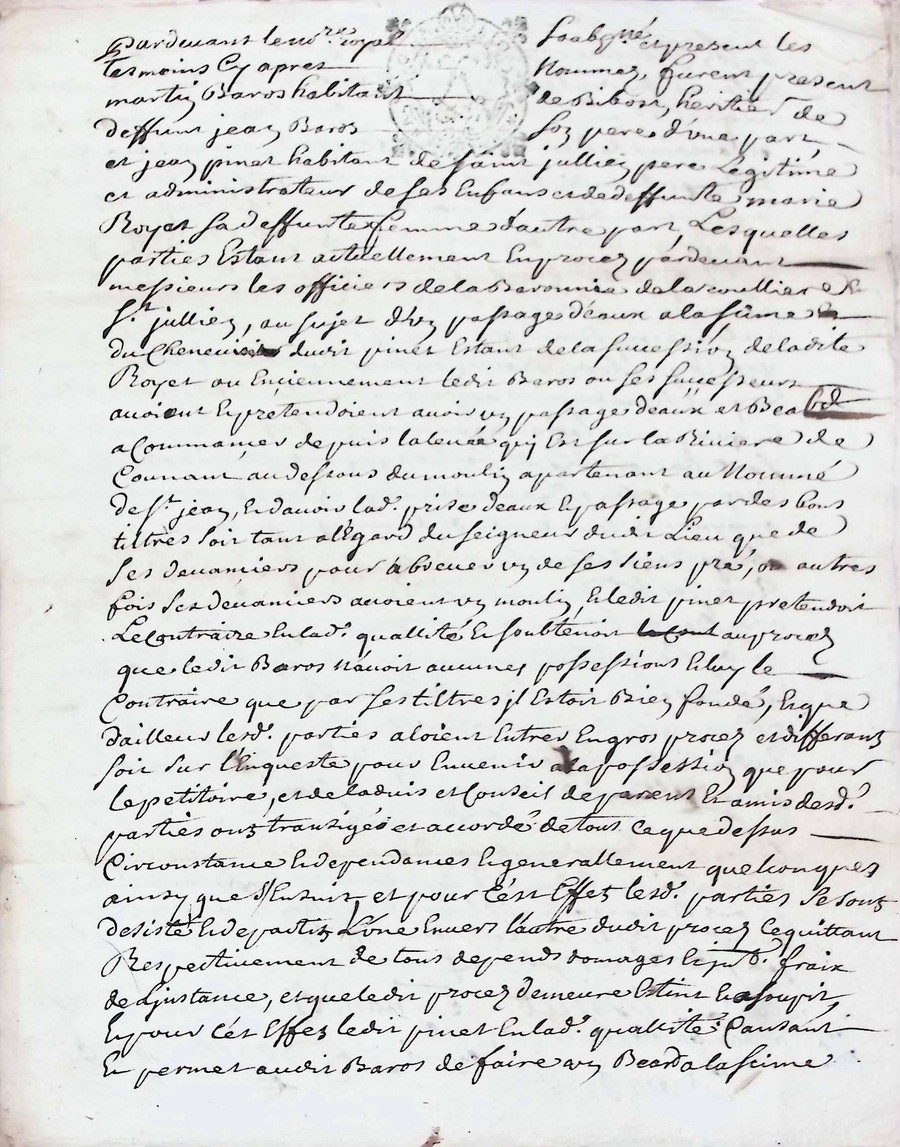 Pardevant le no.re royal soubg.né et present les
tesmoins cy apres nommez, furent present
martin Baros habitant de Bibost, heritier de
deffunt jean Baros son pere d'une part
et jean pinet habitant de saint jullien pere Legitime
et administrateur de ses Enfans et de deffunte marie
Royet sa deffunte femme d'autre part Lesquelles
parties Estant actuellement En procez pardevant
messieurs les officiers de la Baronnie de la
St jullien, au sujet d'un passage d'eaux a la sime
du Chenevier dudit pinet Estant de la succession de ladite
Royet ou Enciennement ledit Baros ou ses successeurs
avoient Et prétendoient avoir un passage d'eaux et Beal
a Commancer depuis la levée qui Est sur la Riviere de
Counant au dessous du moulin apartenant au Nommé
de St jean, Et d'avoir lad. prise d'eaux Et passage par des bons
tiltres soit tant a l'Egard du seigneur dudit Lieu que de
ses devanciers pour abrever un de ses siens pré, ou autres
fois ses devanciers avoient un moulin, Et ledit pinet pretendoit
Le Contraire En lad. quallité Et soubtenoit au procez
que ledit Baros n'avoit aucunes possessions Et luy le
Contraire que par ses tiltres jl Estoit Bien fondé, Et que
d'ailleur lesd. parties aloient Entrer En gros procez et differans
soit sur l'Enqueste pour En venir a la possession que pour
le petitoire, et de l'advis et Conseil de parent Et amis desd.
parties ont transigés et accordé de tous ce que dessus
Circonstance Et dependances Et generallement quelconques
ainsy que s'Ensuit, et pour C'est Effet lesd. parties se sont
desisté Et departis L'une Envers l'autre dudit procez se quittant
Respectivement de tous depends domages Et frais
de Linstance, et que ledit procez demeure Estint Et assoupit,
Et pour C'ét Effet ledit pinet En lad. quallité Consant
Et permet audit Baros de faire un Beard a la scime